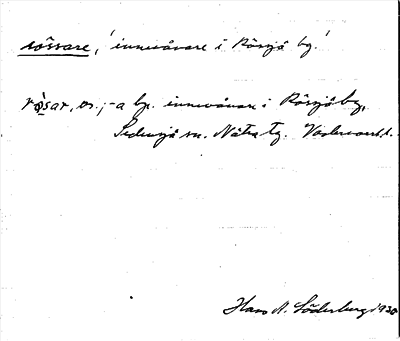 rössare, 'innevånare i Rörsjö by.'
rösar, m.; -a bp. innevånare i Rörsjö by,
Sidensjö sn. Nätra tg. Västernorrl.
Hans N. Söderberg 1930